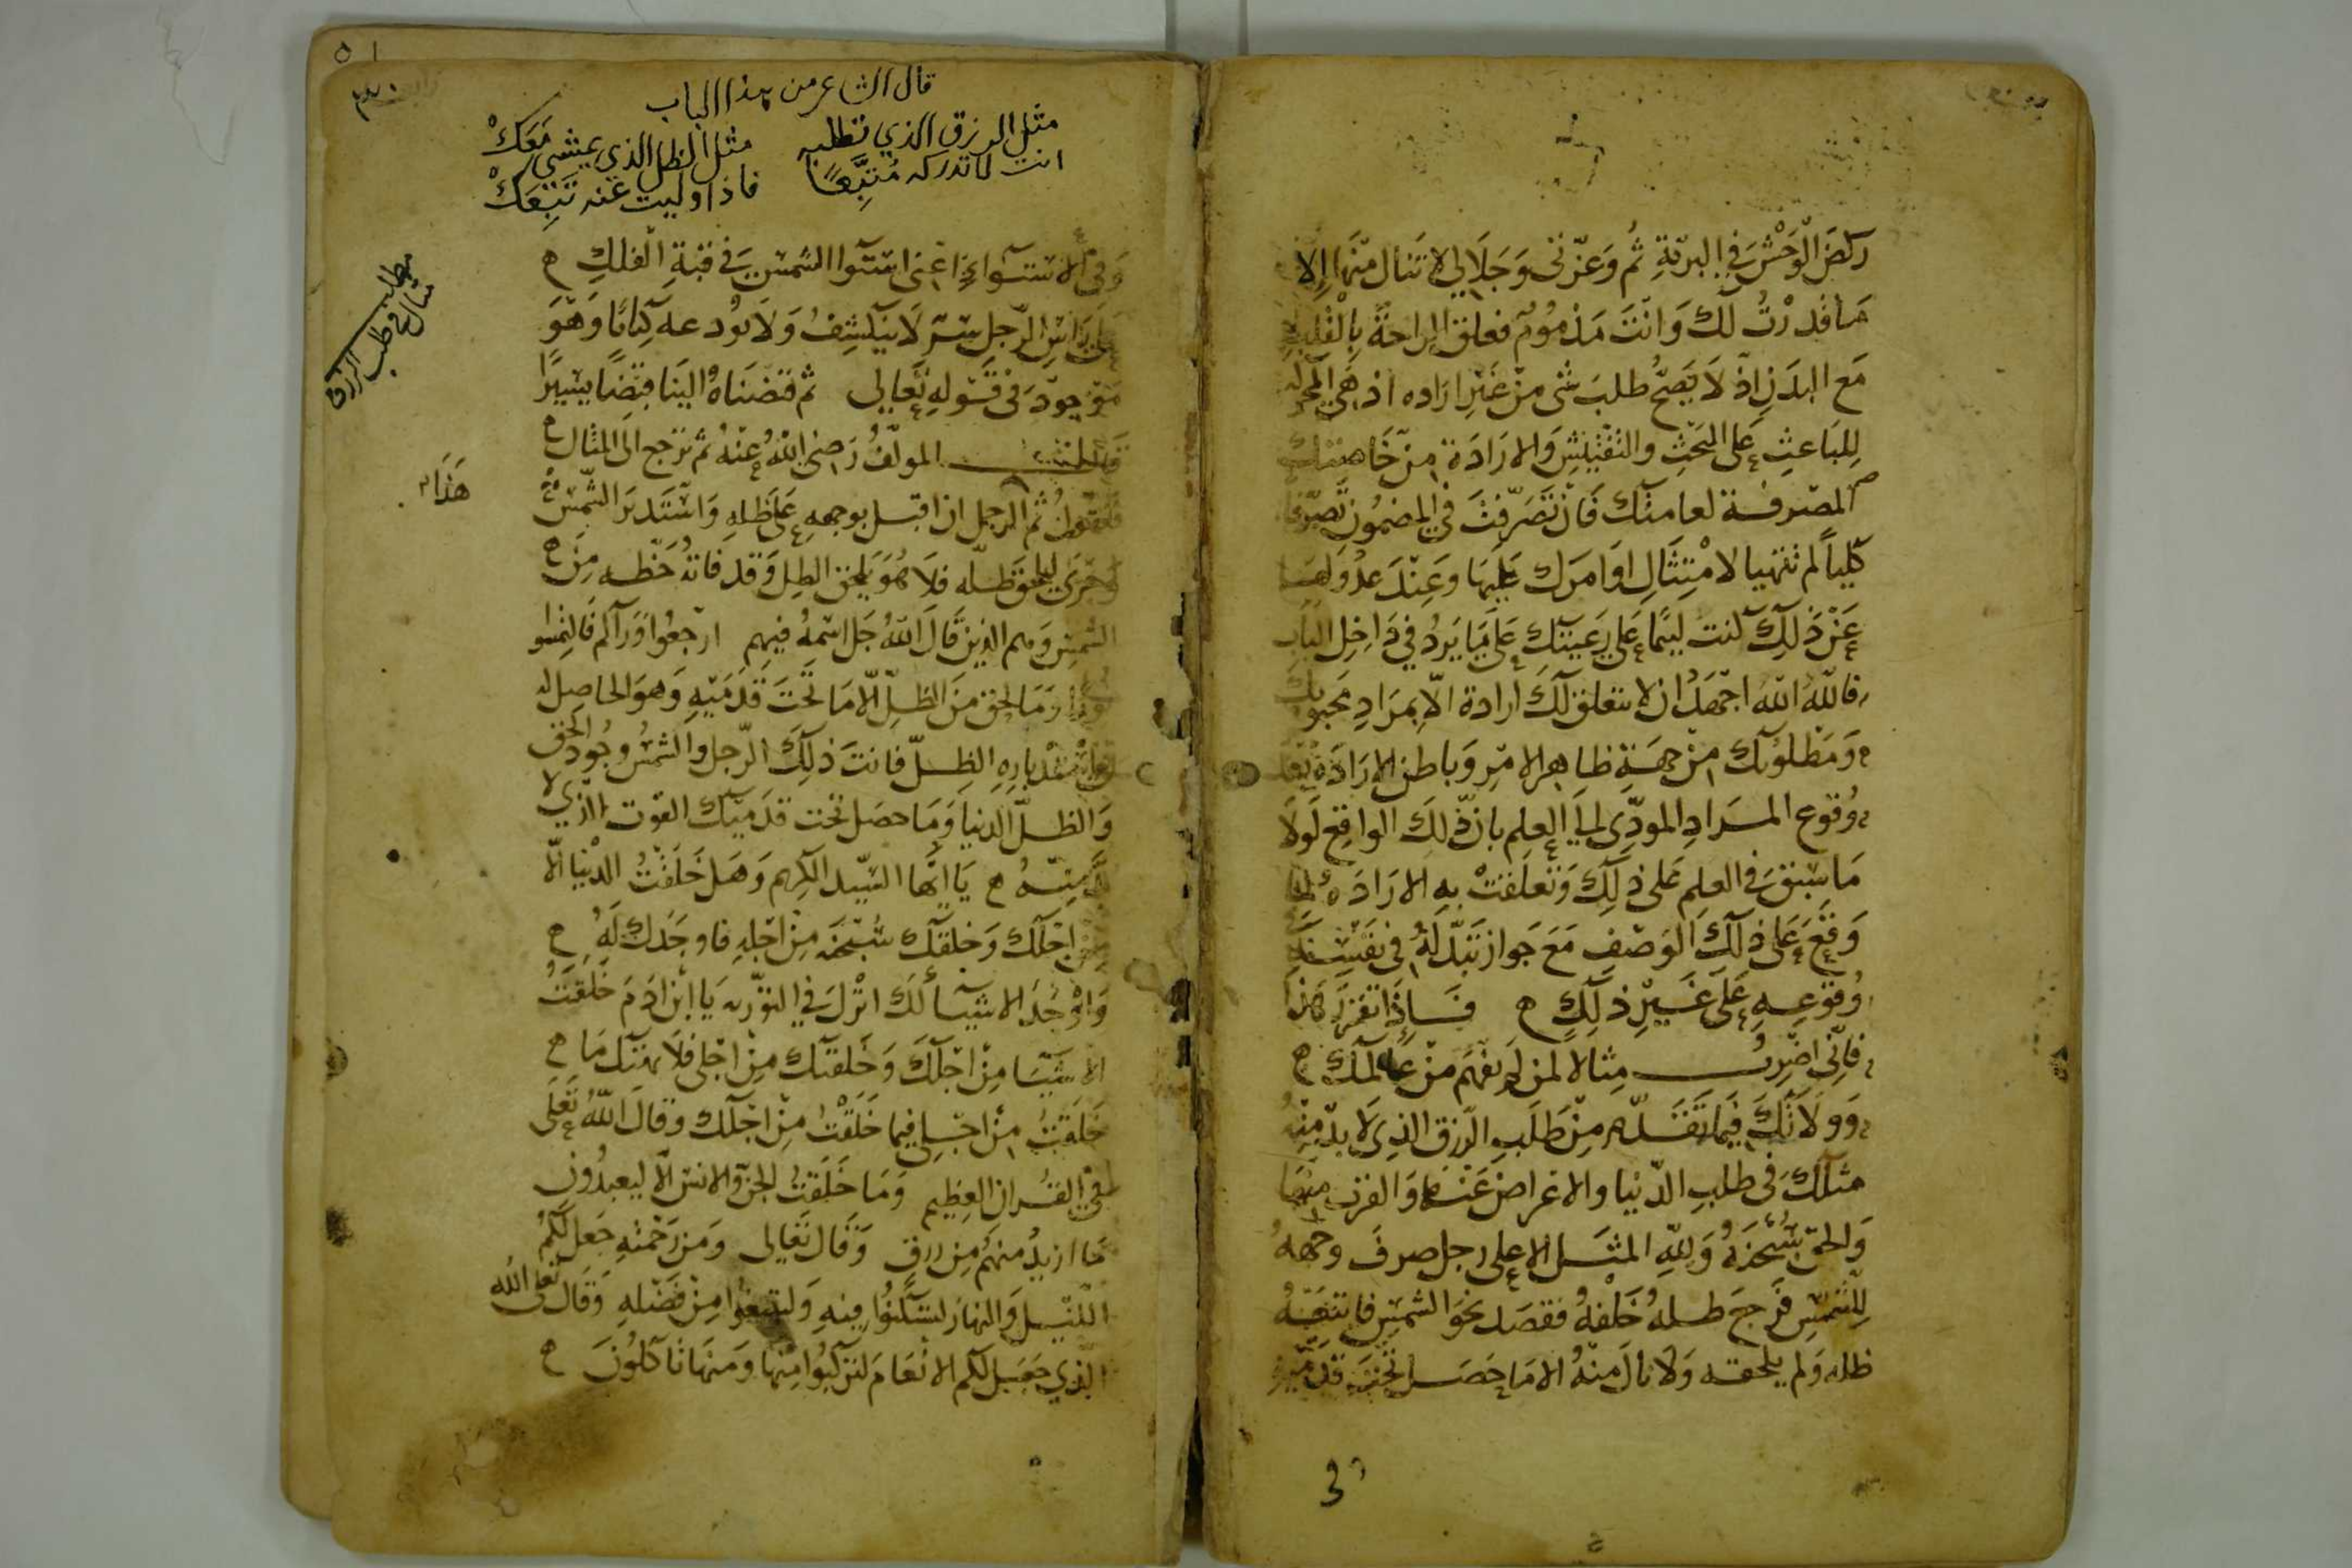 ركض الوحش في البرية ثم وعزتي وجلالي لا تنال منها إلا
ما قدرت لك وانت مذموم فعلق الراحة بالقلب
مع البدن اذ لا يصح طلب شي من غير ارادة اذ هي المحركة
للباعث على البحث والتفتيش والارادة من خاصتك
المتصرفة لعامتك فان تصرفت في المضمون تصرفا
كليا لم تتهيا لامتثال اوامرك عليها وعند عدولها
عن ذلك كنت ليما على رعيتك على ما يرد في داخل الباب
فالله الله اجهد ان لا تتعلق لك ارادة الا بمراد محبوبك
ومطلوبك من جهة ظاهر الامر وباطن الارادة
وقوع المراد المودي الي العلم بان ذلك الواقع لولا
ما سبق في العلم على ذلك وتعلقت به الارادة لما
وقع على ذلك الوصف مع جواز تبدله في نفسه
وقوعه على غير ذلك ه فاذا تقرر هذا
فاني اضرب مثالا لمن لم يفهم من عالمك ه
من طلب الرزق الذي لا بد منه
مثلك في طلب الدنيا والاعراض عنها والفرار منها
والحق سبحنه ولله المثل الاعلى رجل صرف وجهه
للشمس فرجع ظله خلفه فقصد نحو الشمس فاتبعه
ظله ولم يلحقه ولا نال منه الا ما حصل تحت قدميه
في
قال الشاعر من هذا الباب
مثل الرزق الذي تطلبه مثل الظل الذي يمشي معك
انت لا تدركه متبعا فاذا وليت عنه تتبعك
مطلب
مثال في طلب الرزق
وفي الاستواء اعني استوا الشمس في قبة الفلك ه
على راس الرجل سر لا ينكشف ولا نودعه كتابا وهو
موجود في قوله تعالى ثم قبضناه الينا قبضا يسيرا
المولف رضي الله عنه ثم نرجع الى المثال ه
هذا
فنقول ثم الرجل ان اقبل بوجهه على ظله واستدبر الشمس
وجرى ليلحق ظله فلا هو يلحق الظل وقد فاته حظه من ه
الشمس وهم الذين قال الله جل اسمه فيهم ارجعوا وراكم فالتمسوا
نورا وما لحق من الظل الا ما تحت قدميه وهو الحاصل له
في استدباره الظل فانت ذلك الرجل والشمس وجود الحق
والظل الدنيا وما حصل تحت قدميك القوت الذي لا
بد منه ه يا ايها السيد الكريم وهل خلقت الدنيا الا
من اجلك وخلقك سبحنه من اجله فاوجدك له ه
واوجد الاشيا لك انزل في التورية يا ابن ادم خلقت
الاشيا من اجلك وخلقتك من اجلي فلا تهتك ما ه
خلقت من اجلي فيما خلقت من اجلك وقال الله تعلى
في القران العظيم وما خلقت الجن والانس الا ليعبدون
ما اريد منهم من رزق وقال تعالى ومن رحمته جعل لكم
الليل والنهار لتسكنوا فيه ولتبتغوا من فضله وقال تعلى الله
الذي جعل لكم الانعام لتركبوا منها ومنها تاكلون ه